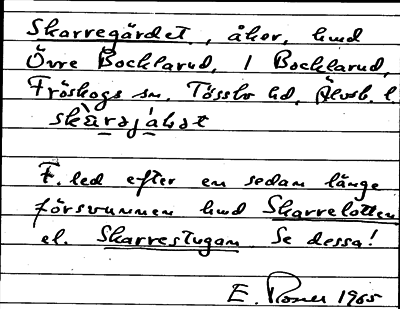 Skarregärdet, åker, hmd
Övre Bocklarud, 1 Bocklarud,
Fröskogs sn. Tössbo hd, Älvsb. l.
F. led efter en sedan länge
försvunnen hmd Skarrelotten
el. Skarrestugan Se dessa!
E. 1965